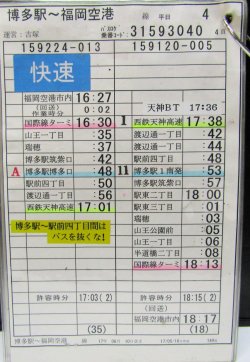 博多駅～福岡空港 線 平日 4
運営：吉塚 31593040 4
159224-013 159120-005
快速
福岡空港市内 16:27
(回送) 0:02
作業時分
国際線ターミ 16:30
山王一丁目 :35
瑞穂 :37
博多駅筑紫口 :42
A 博多駅博多口 :48
駅前四丁目 :50
渡辺通一丁目 :56
西鉄天神高速 17:01
博多駅～駅前四丁目間は
バスを抜くな！
許容時分 17:03 (2)
(35)
天神BT 17:36
1 西鉄天神高速 17:38
渡辺通一丁目 :42
駅前四丁目 :48
11 博多駅1南発 :53
博多駅筑紫口 :57
駅東二丁目 18:00
駅東三丁目 :01
瑞穂 :03
山王公園前 :05
山王一丁目 :06
半道橋二丁目 :08
国際線ターミ 18:13
許容時分 18:15 (2)
(回送)
福岡空港市内 18:17
(18)
博多駅～福岡空港 線